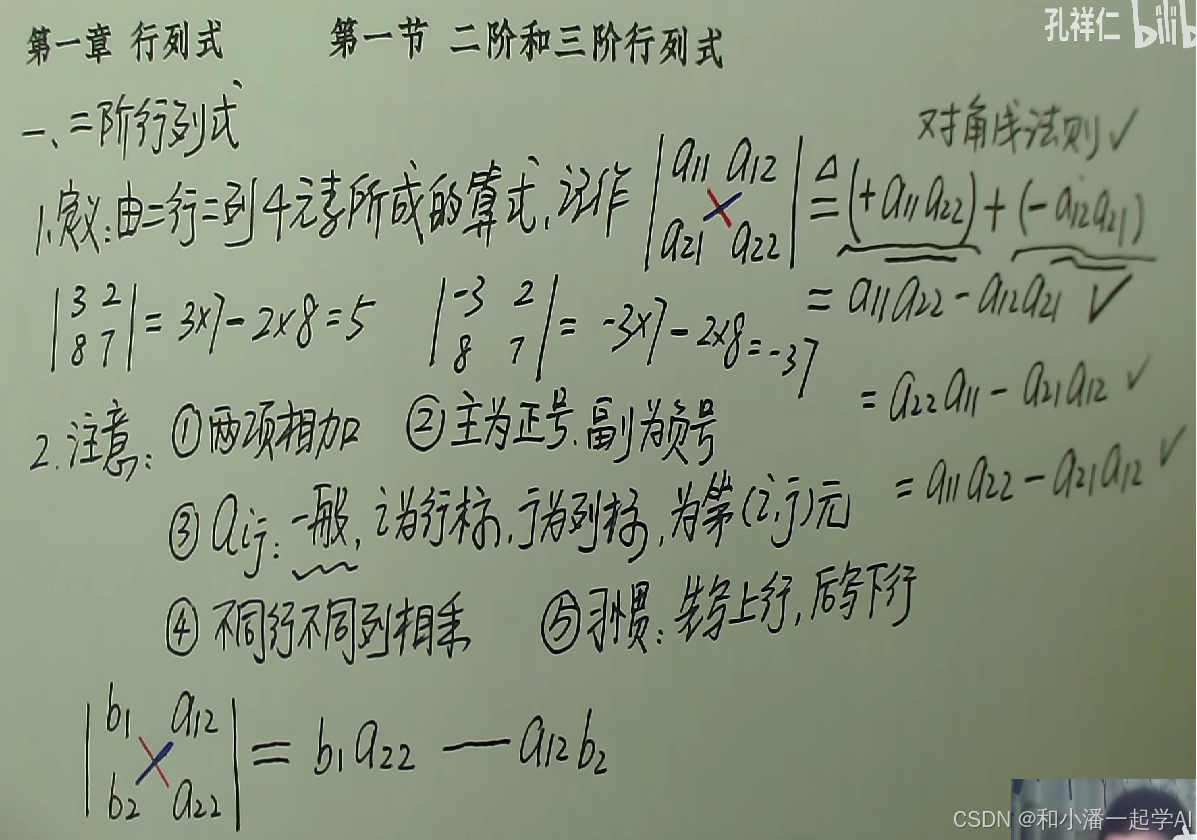 孔祥仁 bilib
第一章 行列式 第一节 二阶和三阶行列式
一、二阶行列式
对角线法则 ✓
1.定义:由二行二列4元素所成的算式,记作 |a11 a12 / a21 a22| ≜ (+a11a22)+(-a12a21)
= a11a22 - a12a21 ✓
|3 2 / 8 7| = 3×7-2×8=5 |-3 2 / 8 7| = -3×7-2×8=-37
= a22a11 - a21a12 ✓
2.注意: ①两项相加 ②主为正号、副为负号
= a11a22 - a21a12 ✓
③ aij: 一般, i为行标, j为列标, 为第(i,j)元
④ 不同行不同列相乘 ⑤习惯: 先写上行, 后写下行
|b1 a12 / b2 a22| = b1a22 — a12b2
CSDN @和小潘一起学AI